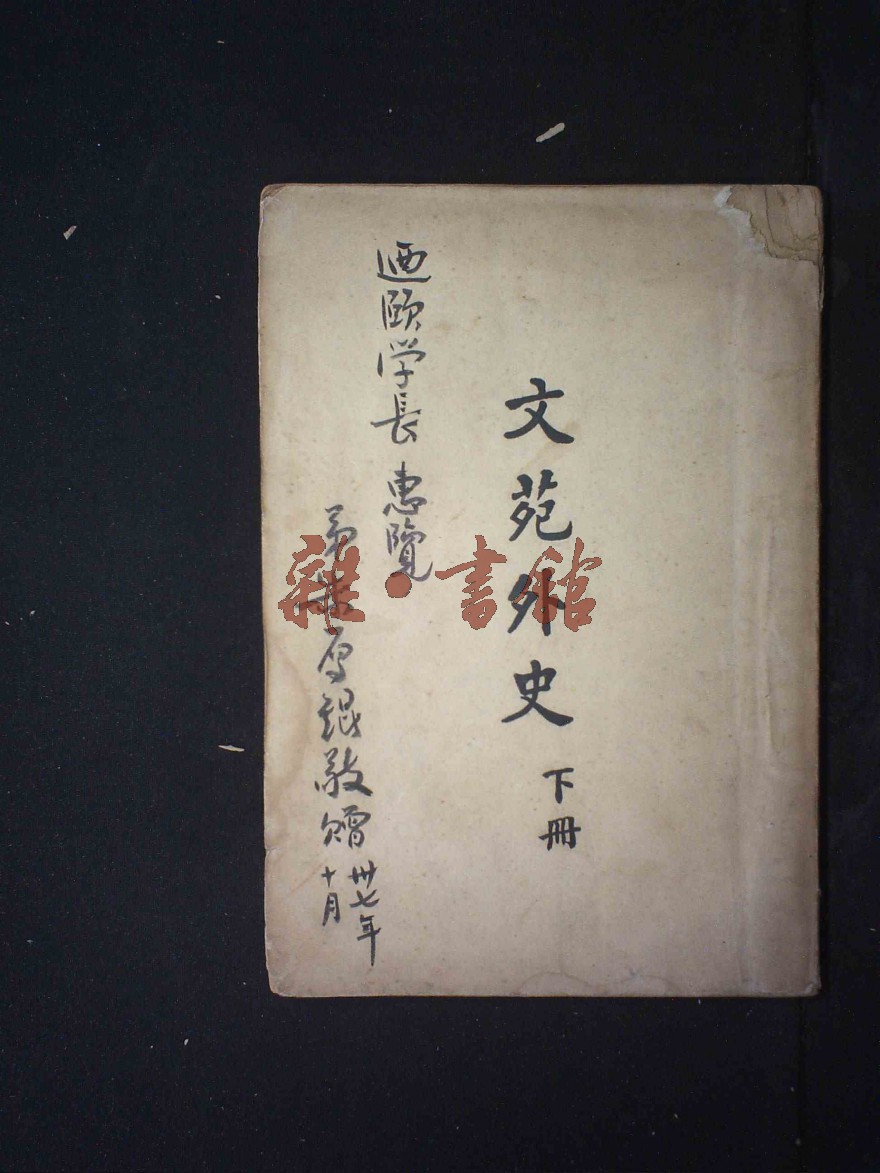 文苑外史
下冊
迺頤学長 惠覽
弟 錕敬贈
卅七年
十月
雜·書館